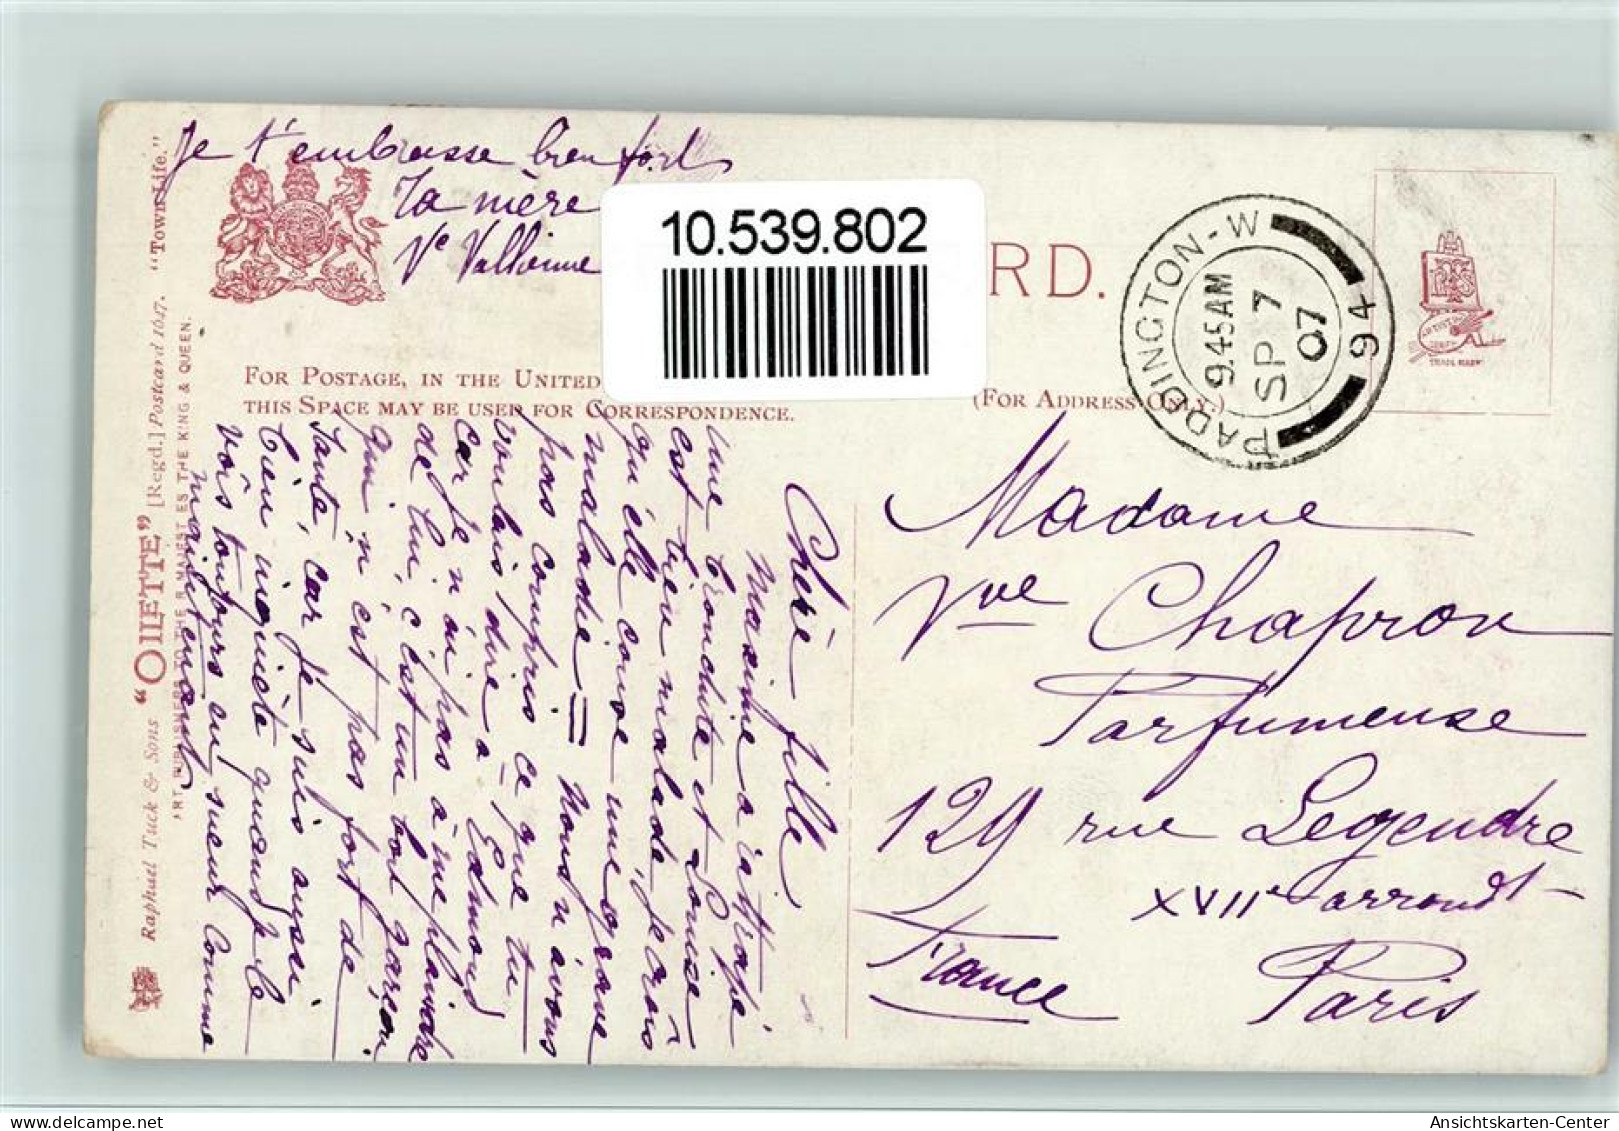 Je t'embrasse bien fort
Ta mère
Ve Vallienne
10.539.802
RD.
FOR POSTAGE, IN THE UNITED
THIS SPACE MAY BE USED FOR CORRESPONDENCE.
(FOR ADDRESS ONLY.)
PADDINGTON-W
9.45AM
SP 7
07
94
ARTISTIC
SERIES
TRADE MARK
Raphael Tuck & Sons "OILETTE" [Regd.] Postcard 1647. "Town Life."
ART PUBLISHERS TO THEIR MAJESTIES THE KING & QUEEN.
Chère fille
Maxime a attrapé
une bronchite et Louise
est bien malade, je crois
qu'elle couve une grave
maladie = Nous n'avons
pas compris ce que tu
voulais dire = Edmond
car je n'ai pas à me plaindre
de lui, c'est un bon garçon
qui n'est pas fort de
santé, car je suis aussi
bien inquiète quand je le
vois toujours en sueur comme
maintenant
Madame
Vve Chapron
Parfumeuse
129 rue Legendre
XVIIe arrondt
Paris
France
AnsichtsKarten-Center